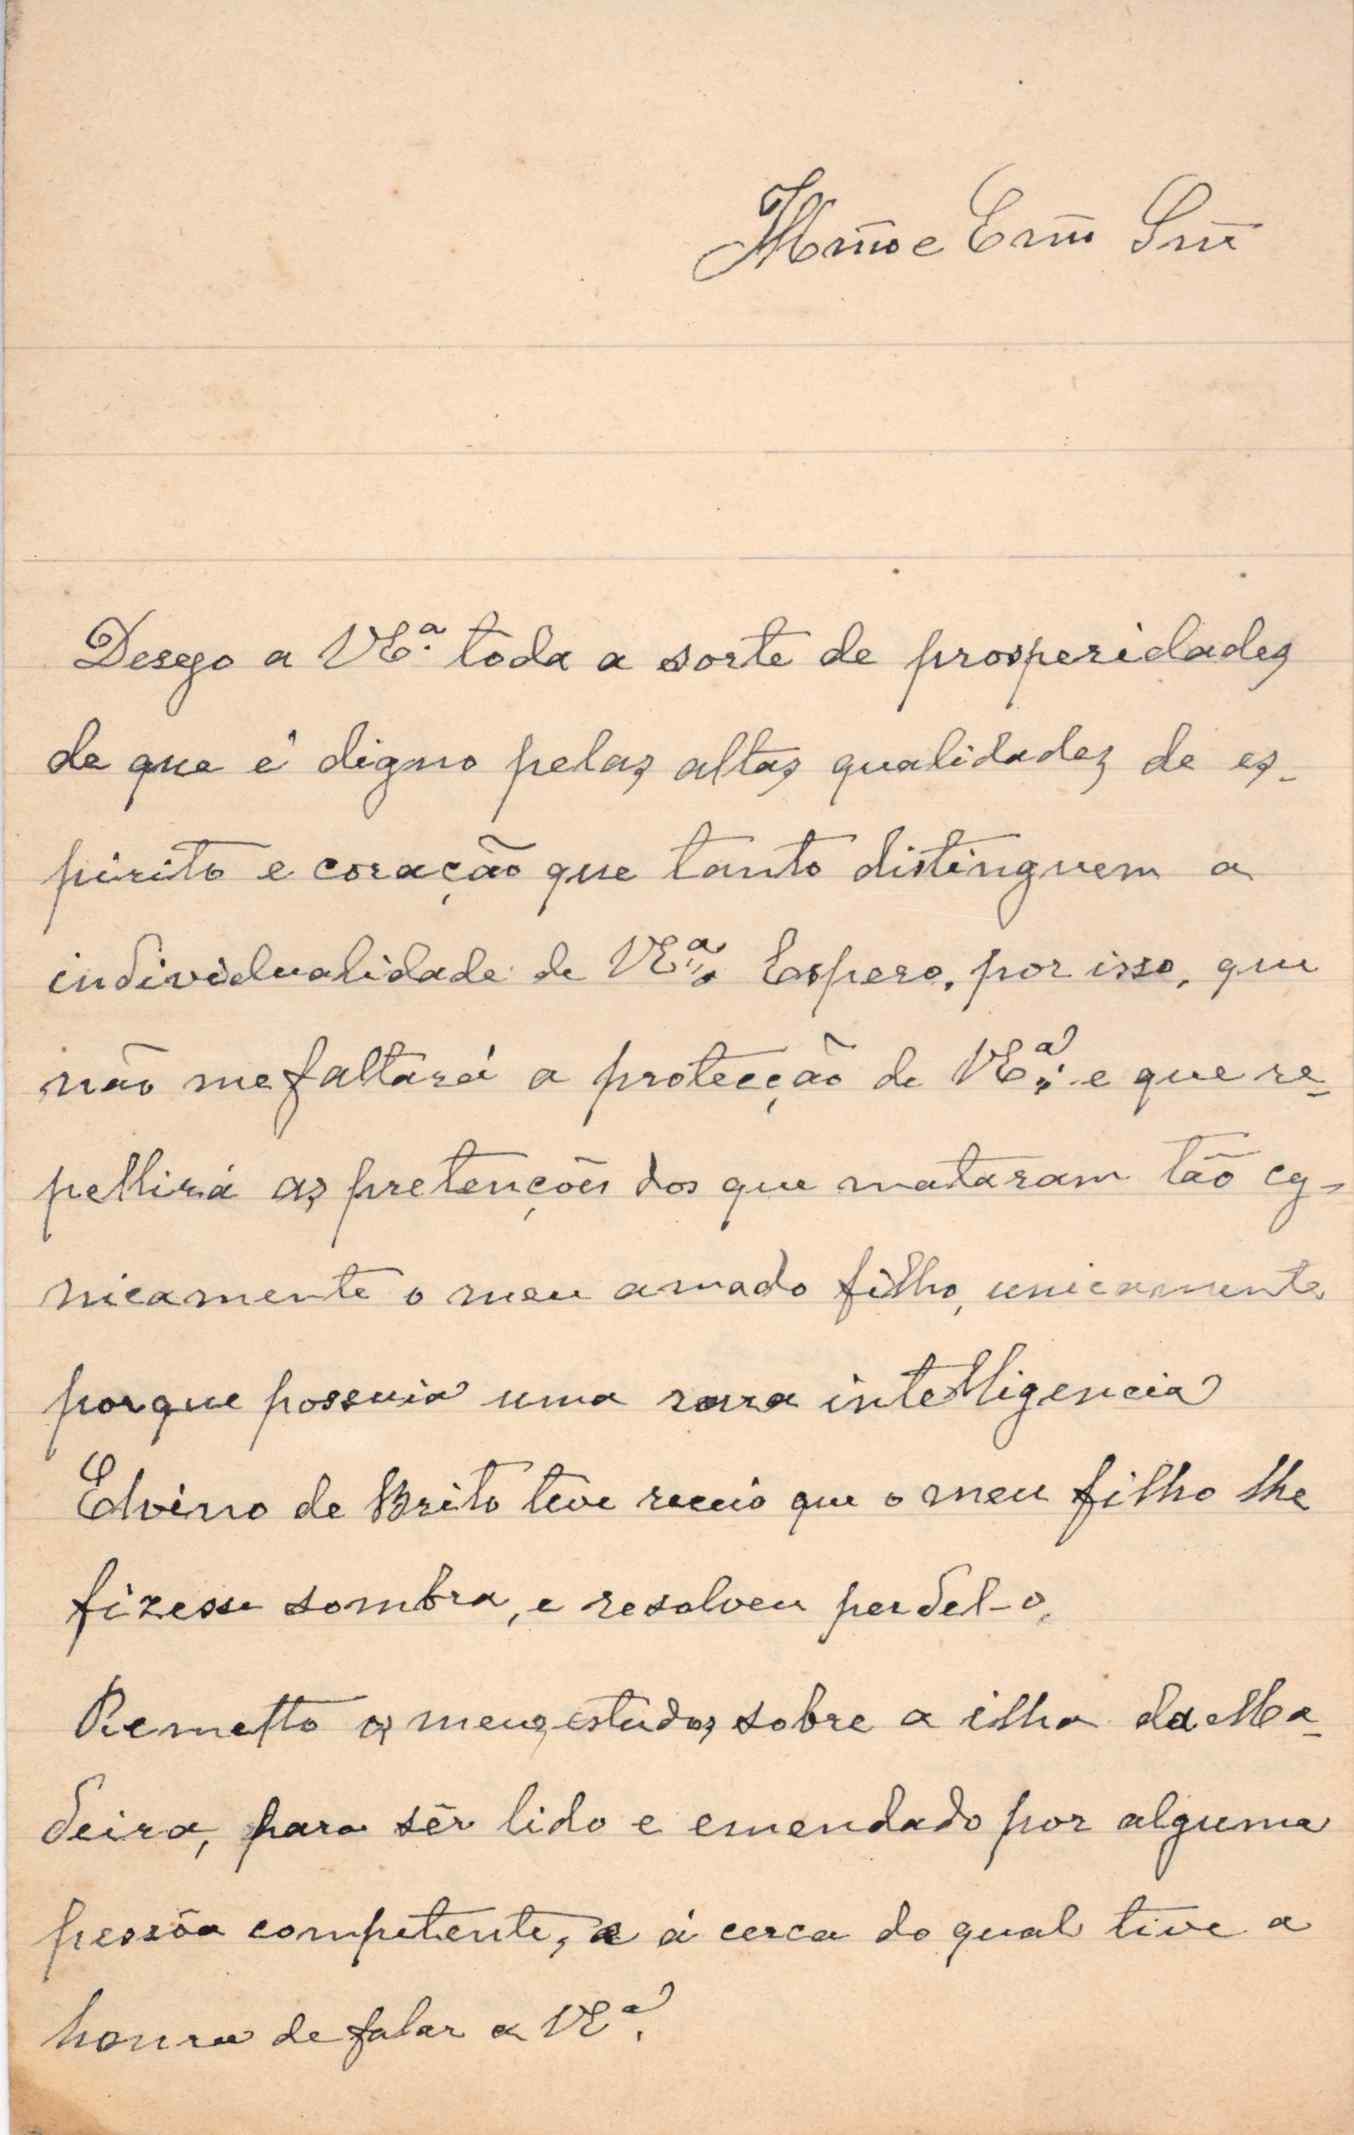 Illmo e Exmo Snr
Desejo a VEª. toda a sorte de prosperidades
de que é digno pelas altas qualidades de es-
pirito e coração que tanto distinguem a
individualidade de VEª. Espero, por isso, que
não me faltará a protecção de VEª. e que re-
pellirá as pretenções dos que mataram tão cy-
nicamente o meu amado filho, unicamente
porque possuia uma rara intelligencia
Elvino de Brito teve receio que o meu filho lhe
fizesse sombra, e resolveu perdel-o.
Remetto os meus estudos sobre a ilha da Ma-
deira, para sêr lido e emendado por alguma
pessôa competente, e á cerca do qual tive a
honra de falar a VEª.